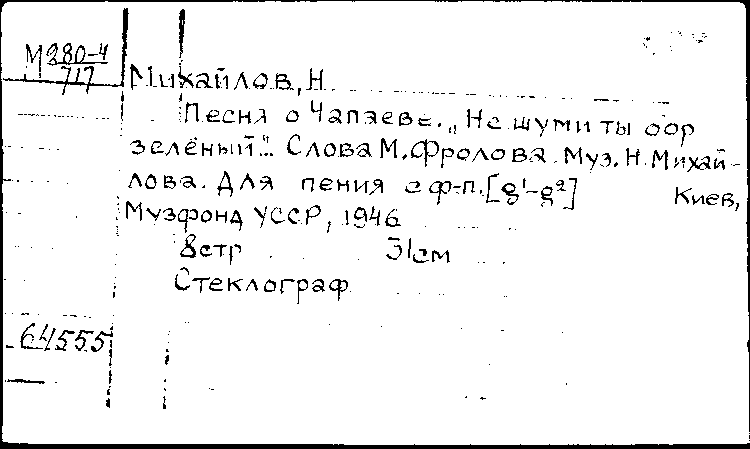 М 280-4
717
Михайлов, Н.
Песня о Чапаеве. „Не шуми ты бор
зелёный". Слова М. Фролова. Муз. Н. Михай-
лова. Для пения с ф-п. [g¹-g²] Киев,
Музфонд УССР, 1946
8 стр 31 см
Стеклограф
64555